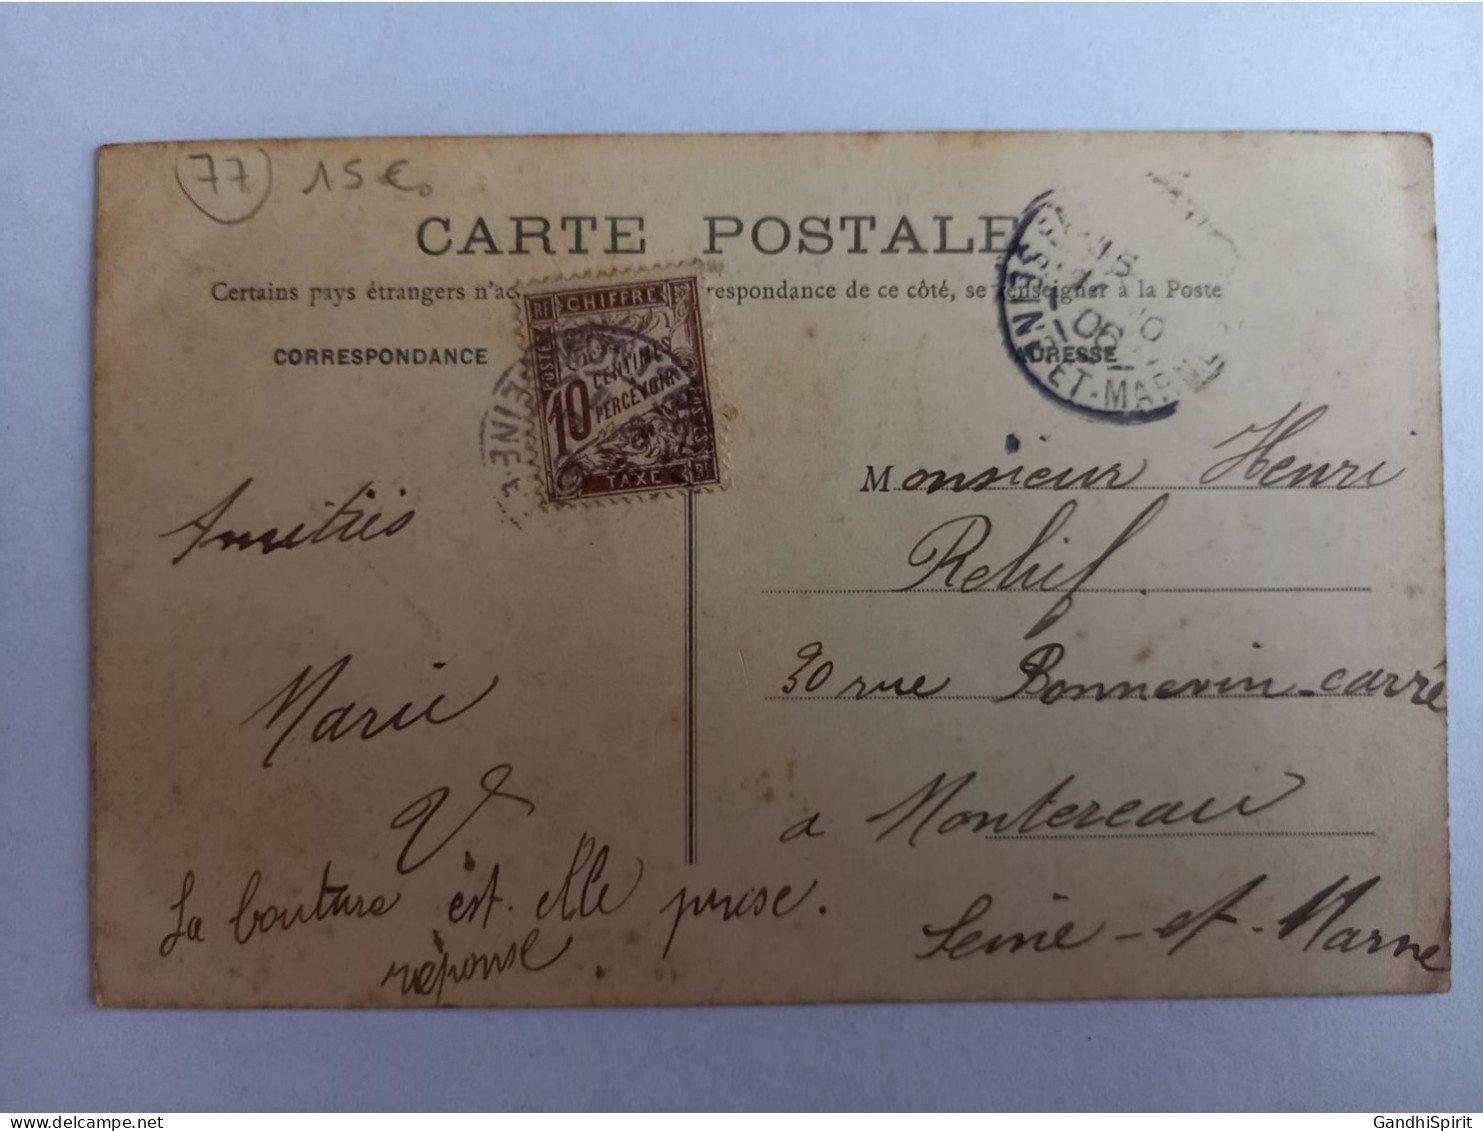 77 15 €
CARTE POSTALE
Certains pays étrangers n'ac respondance de ce côté, se renseigner à la Poste
CORRESPONDANCE
ADRESSE
RF CHIFFRE
POSTES
10 CENTIMES
A PERCEVOIR
TAXE RF
SEINE
SEINE-ET-MARNE
06
Amitiés
Marie
V
La bouture est-elle prise.
réponse
Monsieur Henri
Rehif
30 rue Bonnevin-carré
a Montereau
Seine-et-Marne
GandhiSpirit